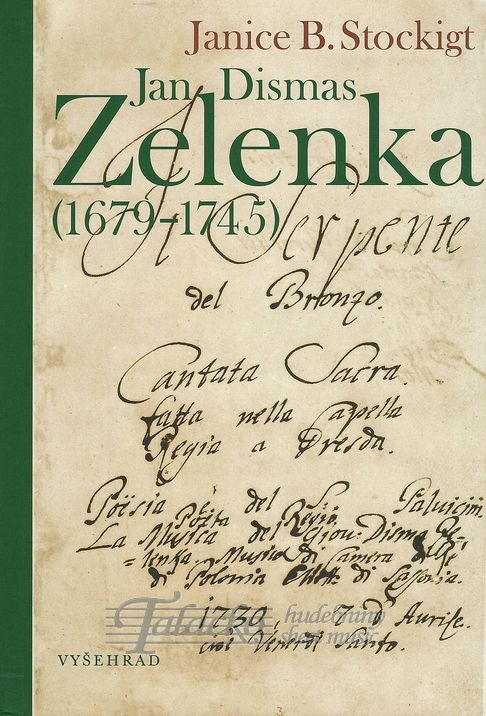 Janice B. Stockigt
Jan Dismas
Zelenka
(1679–1745)
Il Serpente
del Bronzo.
Cantata Sacra.
fatta nella Capella
Regia a Dresda.
Poësia è del S. Palvicini
Poëta Regio.
La Musica del Giov: Disma Ze-
=lenka. Musico di Camera di
di Polonia Elet: di Sassonia.
1730, 7 d' Aurile.
cioè Venerdi Santo.
Talacko hudebniny
sheet music
VYŠEHRAD
3